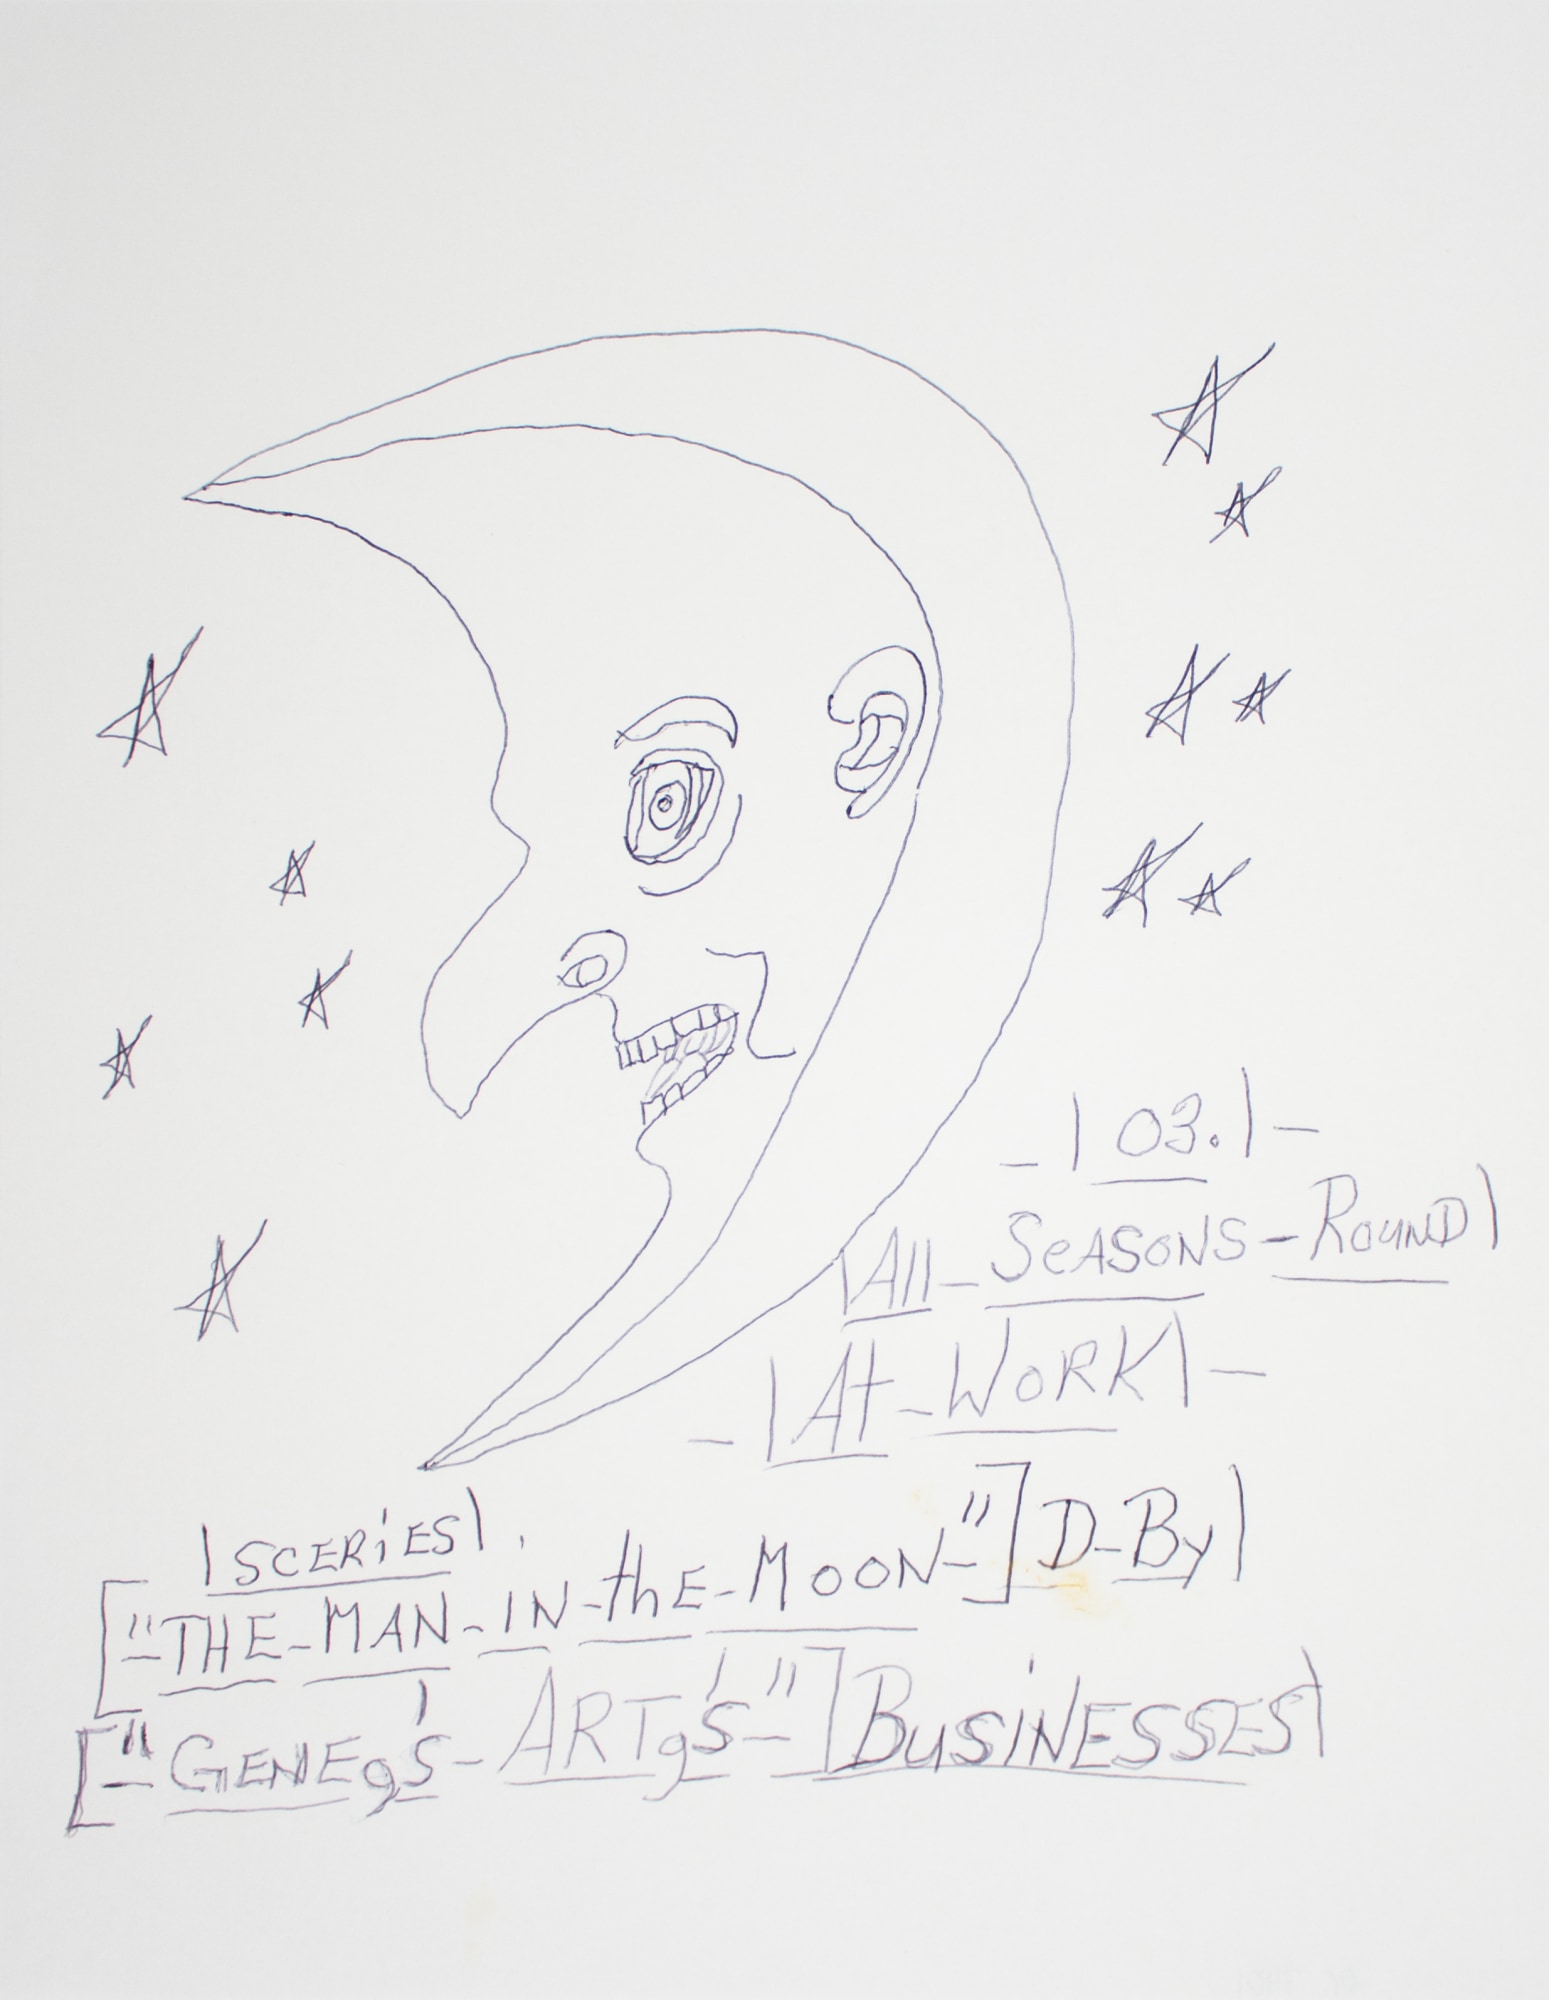 -|03.|-
|All-SeASONS-ROUND|
-|At-WORK|-
|SCERiES|.
["THE-MAN-IN-thE-MOON-"]D-By|
["GENEg'S-ARTg'S-"]BusiNESSES|